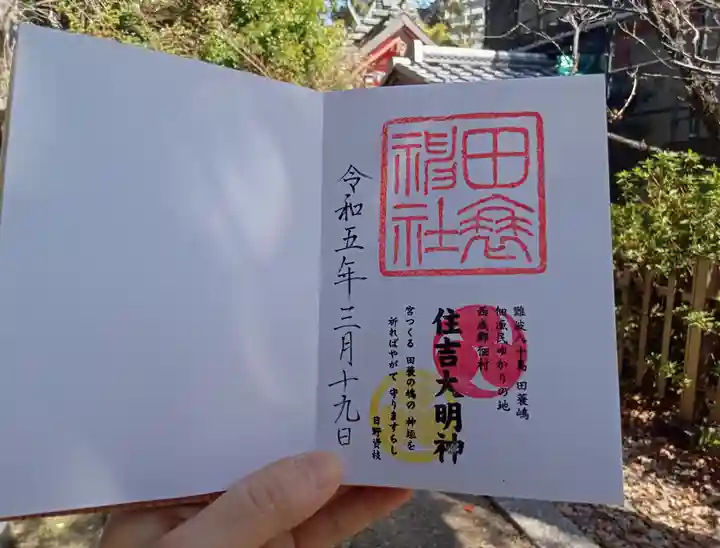 田蓑
神社
難波八十島 田蓑嶋
佃漁民ゆかりの地
西成郡佃村
住吉大明神
宮つくる 田蓑の嶋の 神垣を
祈ればやがて 守りますらし
日野資枝
令和五年三月十九日